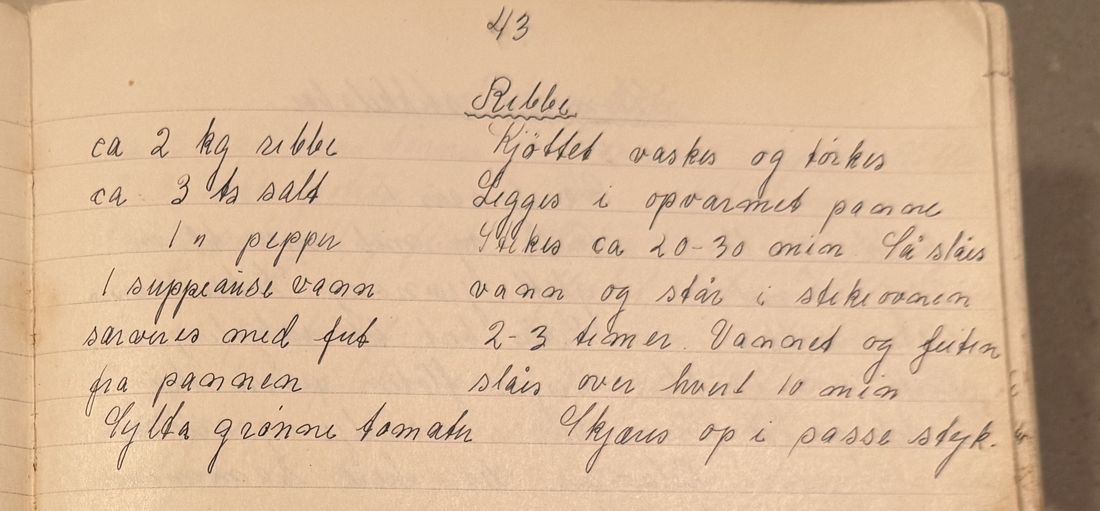 43
Ribbe
ca 2 kg ribbe
ca 3 ts salt
1 " pepper
1 suppeause vann
serveres med fett
fra pannen
Sylta grønne tomater
Kjøttet vaskes og tørkes
Legges i opvarmet panne
Stekes ca 20-30 min. Så slåes
vann og står i stekeovnen
2-3 timer. Vannet og feiten
slåes over hvert 10 min
Skjæres op i passe styk.